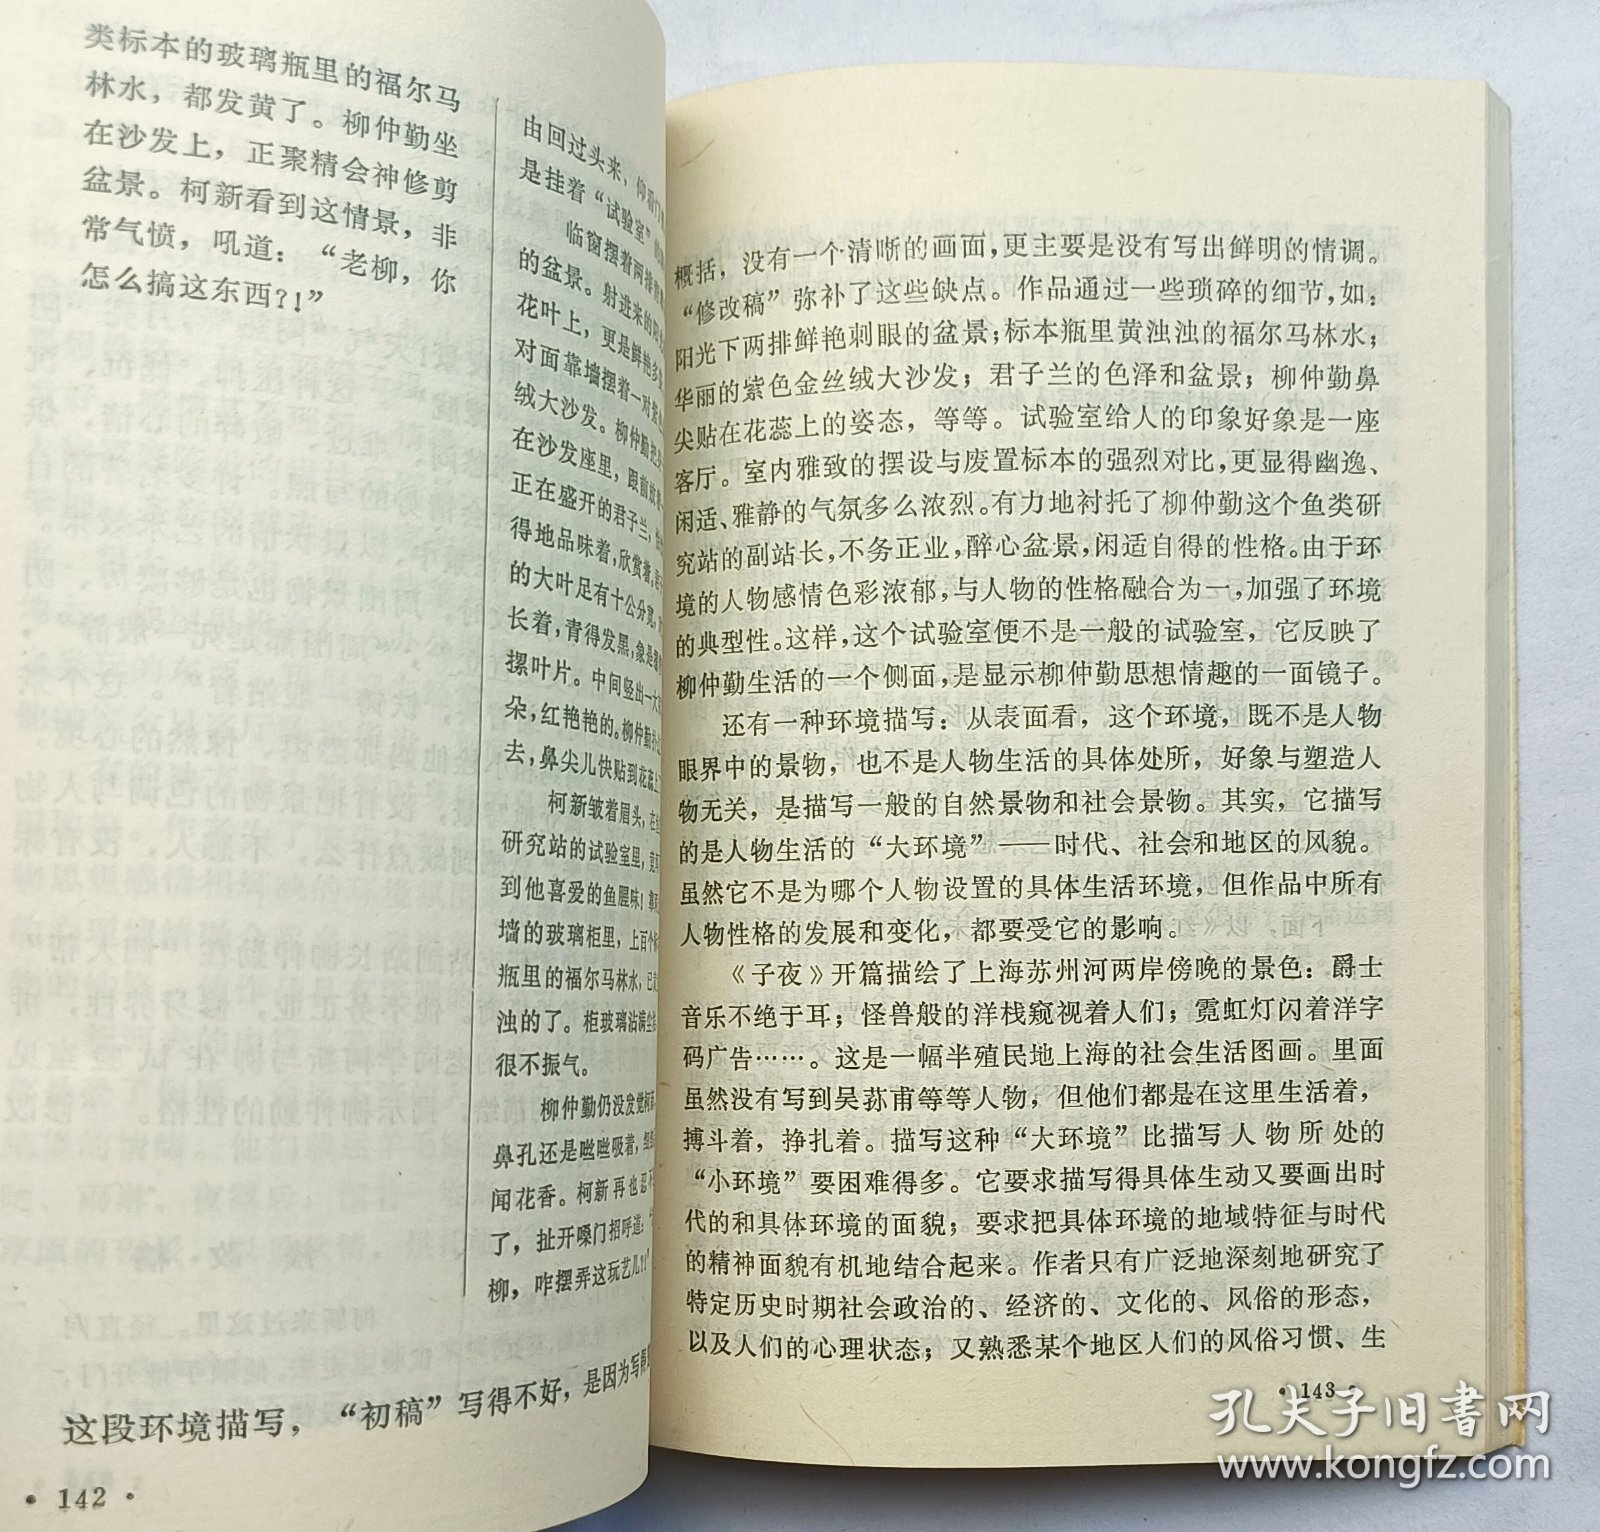 类标本的玻璃瓶里的福尔马
林水，都发黄了。柳仲勤坐
在沙发上，正聚精会神修剪
盆景。柯新看到这情景，非
常气愤，吼道：“老柳，你
怎么搞这东西?!”
由回过头来，仰
是挂着“试验室”
临窗摆着两排
的盆景。射进来的阳
花叶上，更是鲜艳多
对面靠墙摆着一对紫色
绒大沙发。柳仲勤把
在沙发座里，跟前放
正在盛开的君子兰，
得地品味着，欣赏着，
的大叶足有十公分宽，
长着，青得发黑，象是
摞叶片。中间竖出一大
朵，红艳艳的。柳仲勤
去，鼻尖儿快贴到花蕊上
柯新皱着眉头，在
研究站的试验室里，竟
到他喜爱的鱼腥味！靠
墙的玻璃柜里，上百个
瓶里的福尔马林水，已
浊的了。柜玻璃沾满尘
很不振气。
柳仲勤仍没发觉柯
鼻孔还是咝咝吸着，
闻花香。柯新再也忍不
了，扯开嗓门招呼道：“
柳，咋摆弄这玩艺儿?!”
这段环境描写，“初稿”写得不好，是因为写得
·142·
概括，没有一个清晰的画面，更主要是没有写出鲜明的情调。
“修改稿”弥补了这些缺点。作品通过一些琐碎的细节，如：
阳光下两排鲜艳刺眼的盆景；标本瓶里黄浊浊的福尔马林水；
华丽的紫色金丝绒大沙发；君子兰的色泽和盆景；柳仲勤鼻
尖贴在花蕊上的姿态，等等。试验室给人的印象好象是一座
客厅。室内雅致的摆设与废置标本的强烈对比，更显得幽逸、
闲适、雅静的气氛多么浓烈。有力地衬托了柳仲勤这个鱼类研
究站的副站长，不务正业，醉心盆景，闲适自得的性格。由于环
境的人物感情色彩浓郁，与人物的性格融合为一，加强了环境
的典型性。这样，这个试验室便不是一般的试验室，它反映了
柳仲勤生活的一个侧面，是显示柳仲勤思想情趣的一面镜子。
还有一种环境描写：从表面看，这个环境，既不是人物
眼界中的景物，也不是人物生活的具体处所，好象与塑造人
物无关，是描写一般的自然景物和社会景物。其实，它描写
的是人物生活的“大环境”——时代、社会和地区的风貌。
虽然它不是为哪个人物设置的具体生活环境，但作品中所有
人物性格的发展和变化，都要受它的影响。
《子夜》开篇描绘了上海苏州河两岸傍晚的景色：爵士
音乐不绝于耳；怪兽般的洋栈窥视着人们；霓虹灯闪着洋字
码广告……。这是一幅半殖民地上海的社会生活图画。里面
虽然没有写到吴荪甫等等人物，但他们都是在这里生活着，
搏斗着，挣扎着。描写这种“大环境”比描写人物所处的
“小环境”要困难得多。它要求描写得具体生动又要画出时
代的和具体环境的面貌；要求把具体环境的地域特征与时代
的精神面貌有机地结合起来。作者只有广泛地深刻地研究了
特定历史时期社会政治的、经济的、文化的、风俗的形态，
以及人们的心理状态；又熟悉某个地区人们的风俗习惯、生
·143·
孔夫子旧书网
www.kongfz.com